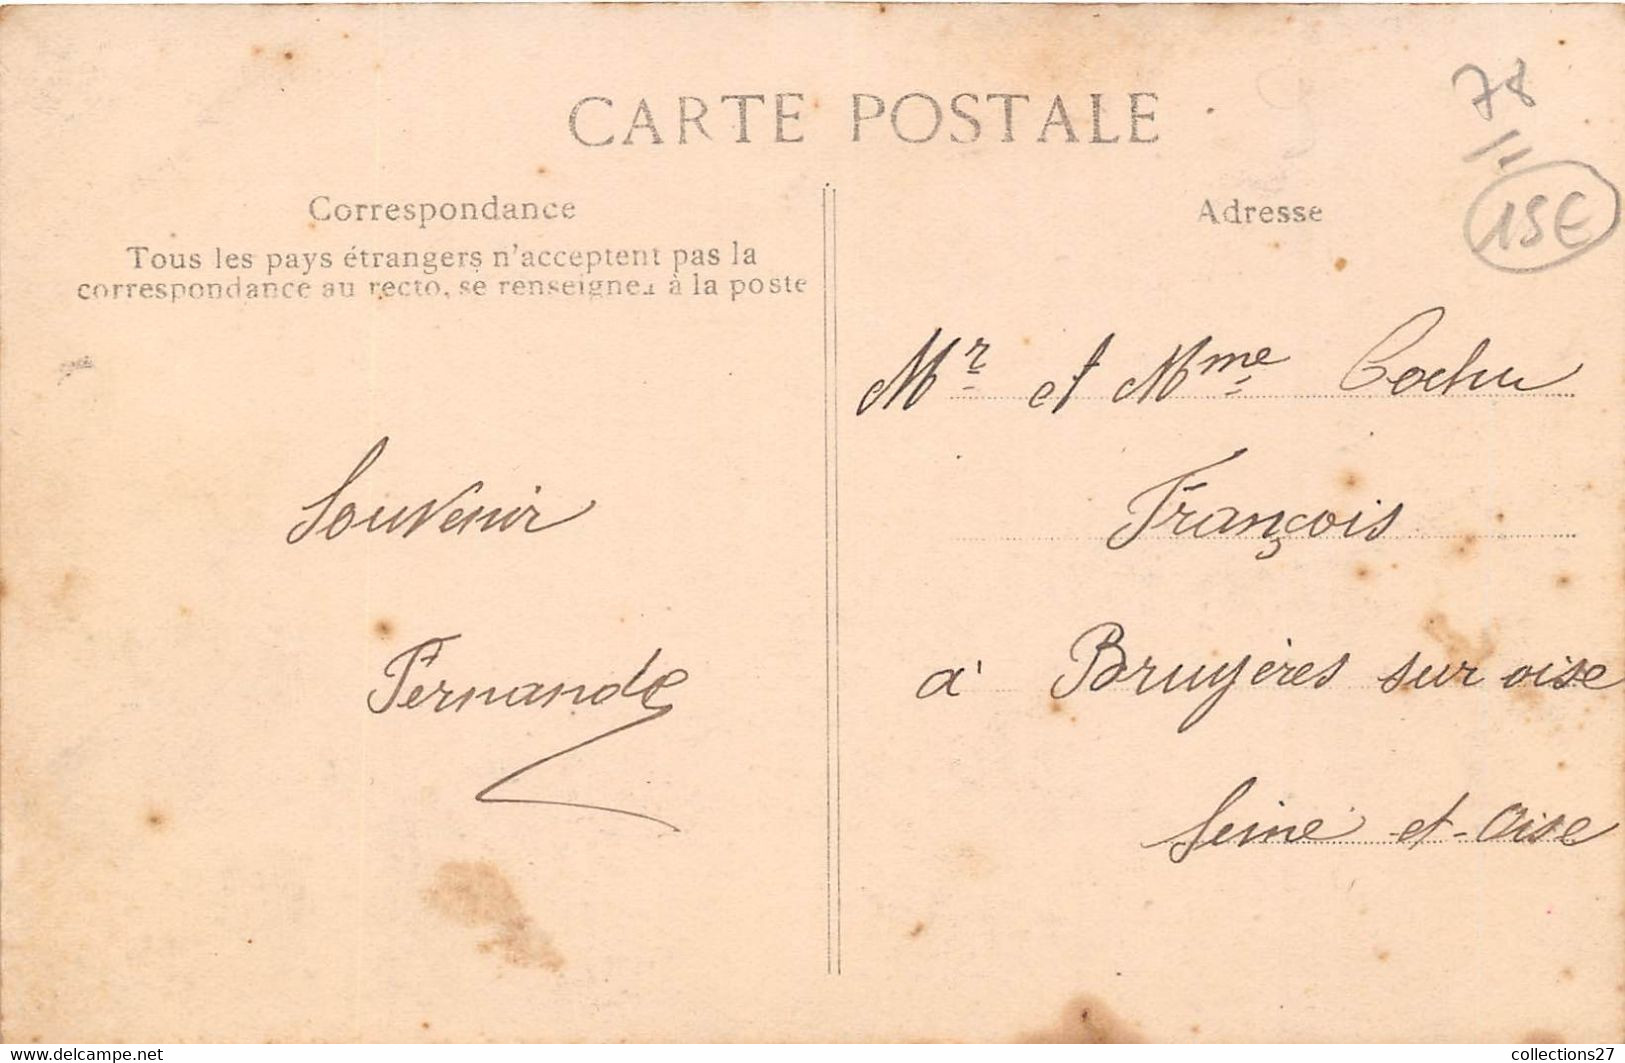 CARTE POSTALE
78
15€
Correspondance
Tous les pays étrangers n'acceptent pas la
correspondance au recto, se renseigner à la poste
Adresse
Mr et Mme Cochu
François
à Bruyères sur oise
Seine et-Oise
Souvenir
Fernande
www.delcampe.net
collections27